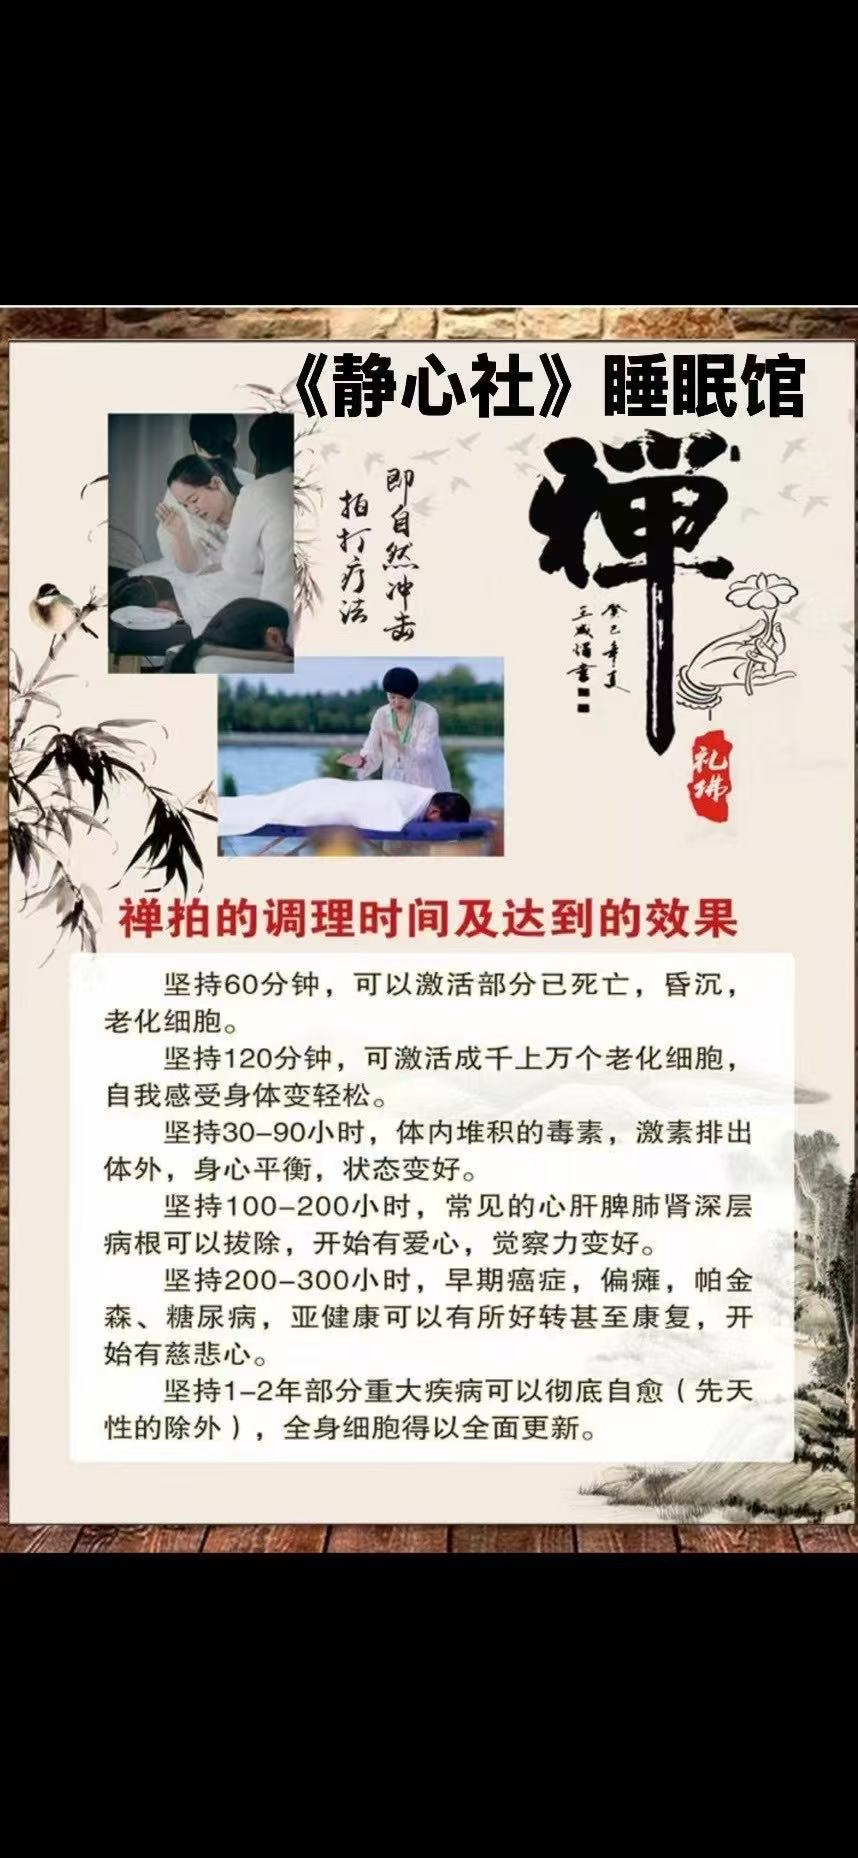 《静心社》睡眠馆
禅
即自然冲击
拍打疗法
癸巳年夏
礼佛
禅拍的调理时间及达到的效果
坚持60分钟，可以激活部分已死亡，昏沉，
老化细胞。
坚持120分钟，可激活成千上万个老化细胞，
自我感受身体变轻松。
坚持30-90小时，体内堆积的毒素，激素排出
体外，身心平衡，状态变好。
坚持100-200小时，常见的心肝脾肺肾深层
病根可以拔除，开始有爱心，觉察力变好。
坚持200-300小时，早期癌症，偏瘫，帕金
森、糖尿病，亚健康可以有所好转甚至康复，开
始有慈悲心。
坚持1-2年部分重大疾病可以彻底自愈（先天
性的除外），全身细胞得以全面更新。